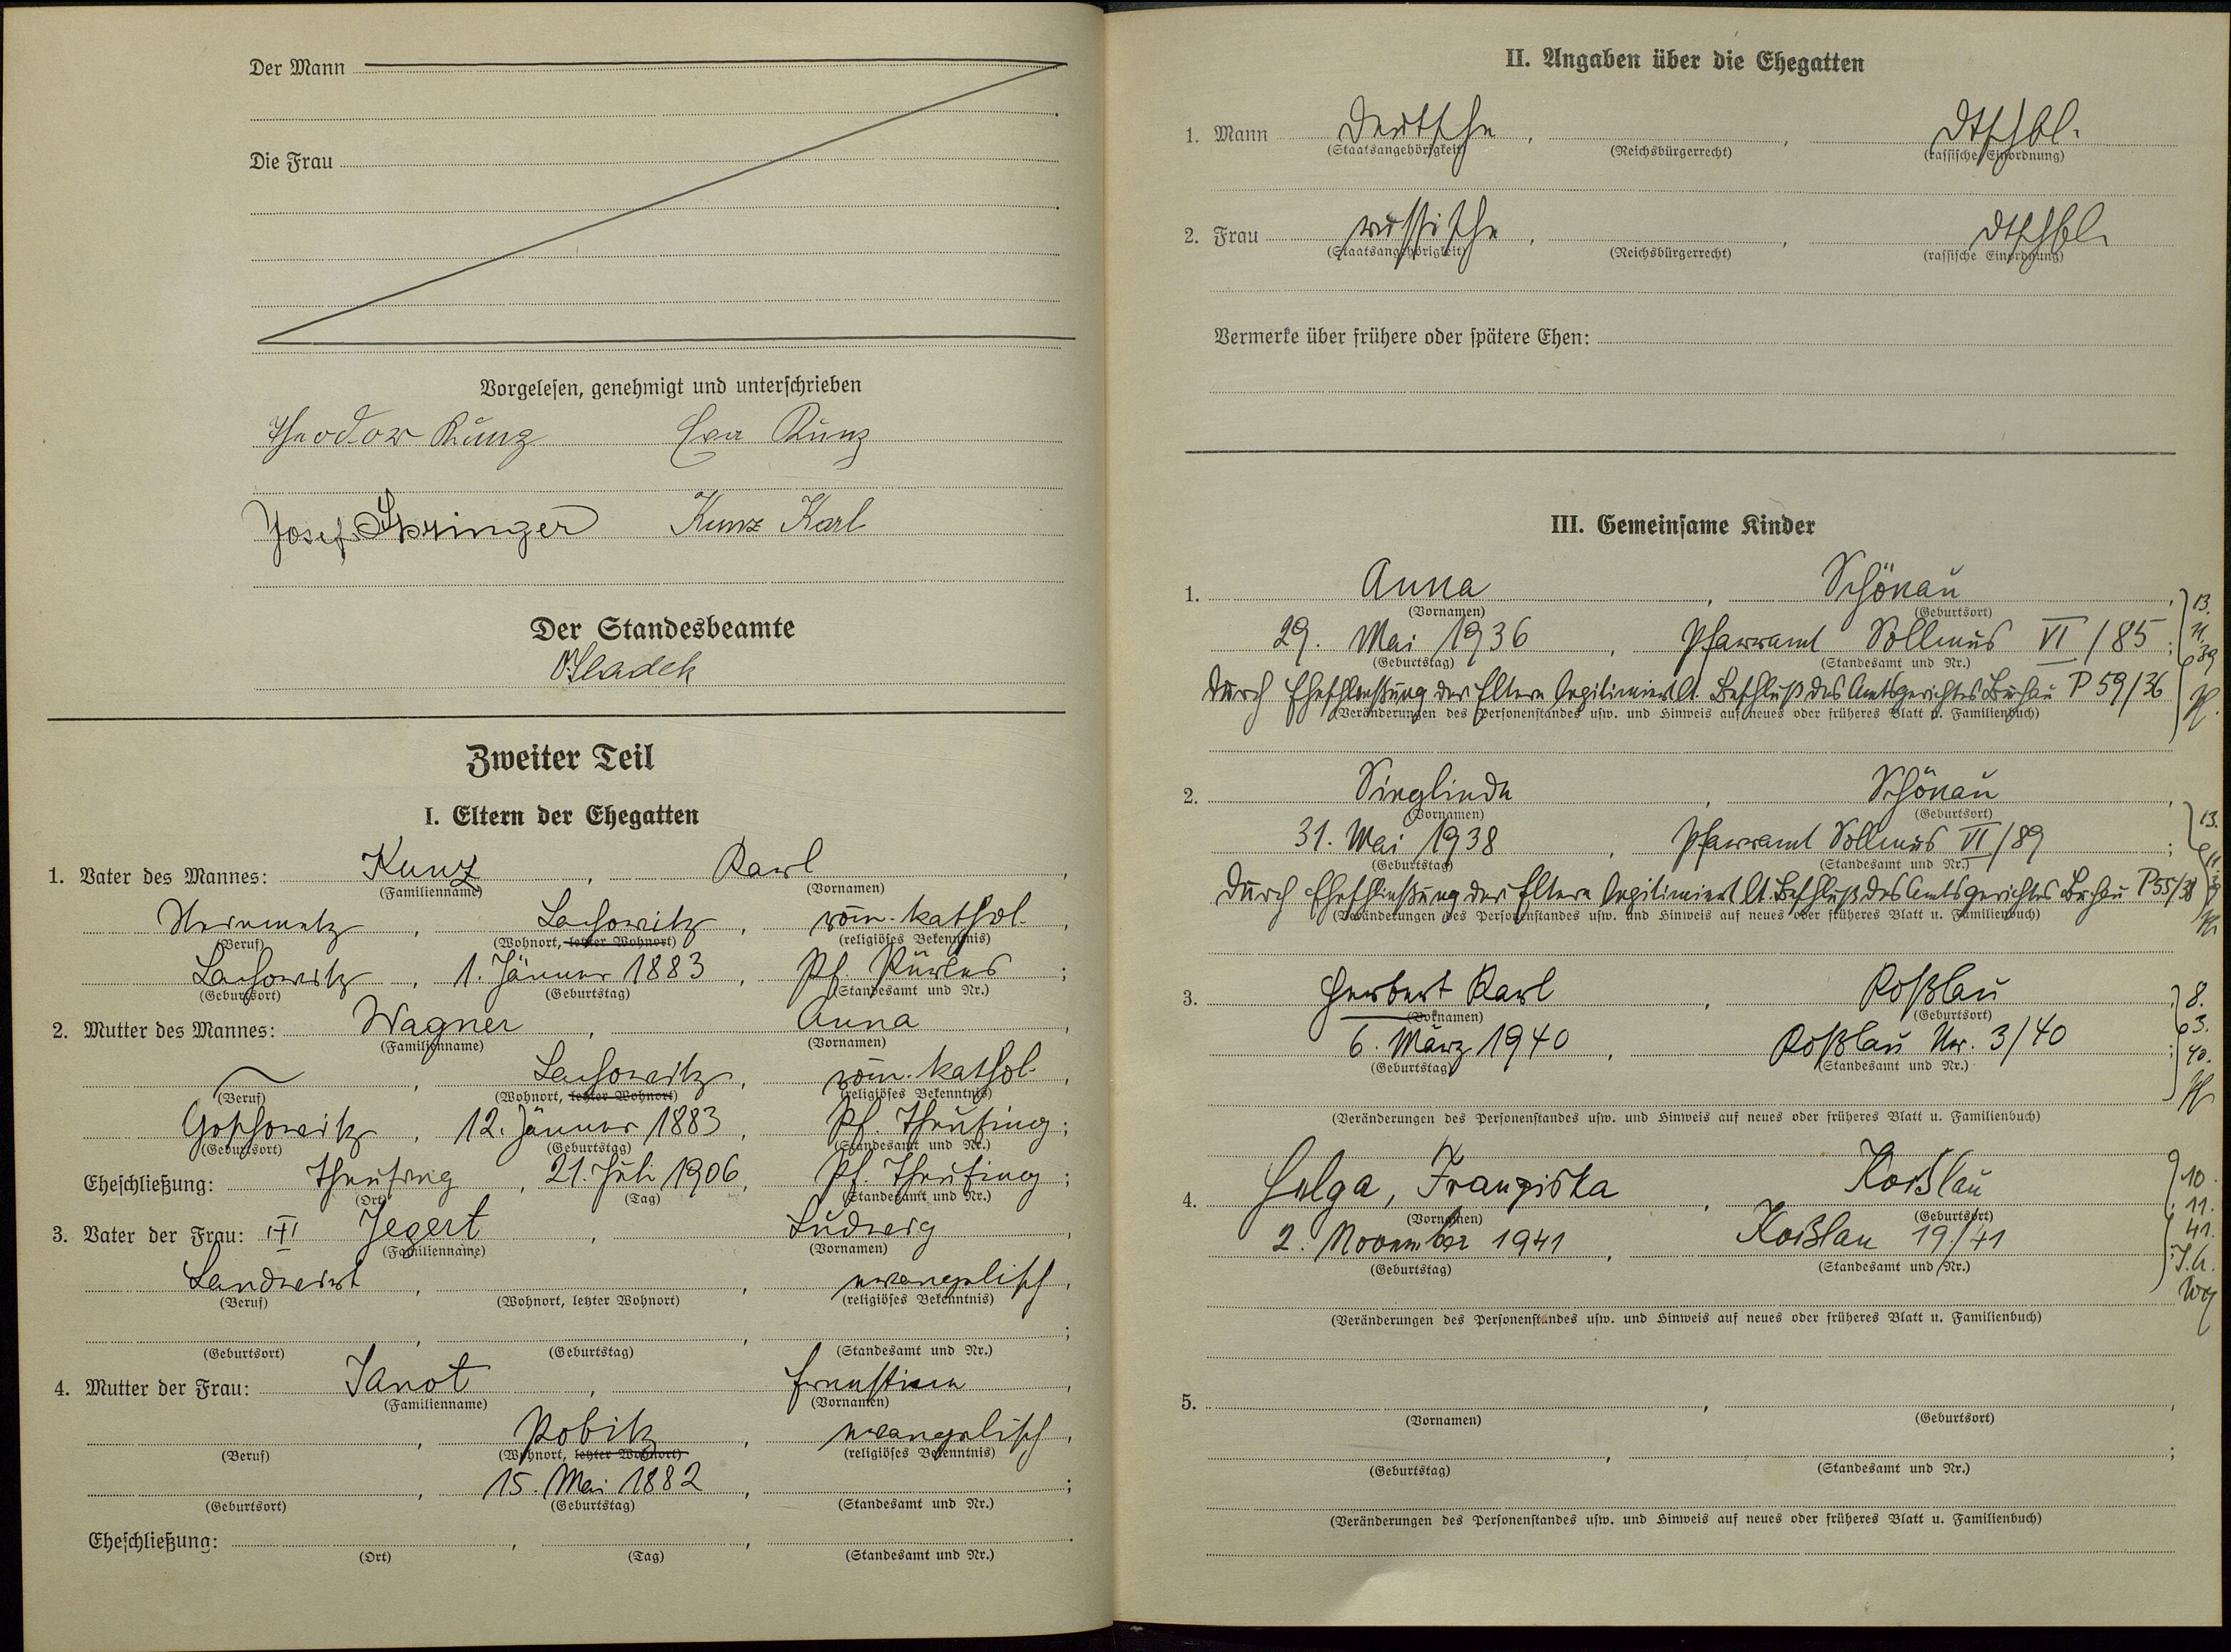 Der Mann
Die Frau
Vorgelesen, genehmigt und unterschrieben
Theodor Kunz Eva Kunz
Josef Springer Kunz Karl
Der Standesbeamte
Zweiter Teil
I. Eltern der Ehegatten
1. Vater des Mannes: Kunz, Karl,
(Familienname) (Vornamen)
Lachowitz, röm. kathol.,
(Beruf) (Wohnort, letzter Wohnort) (religiöses Bekenntnis)
Lachowitz, 1. Jänner 1883, Pf. Pürles;
(Geburtsort) (Geburtstag) (Standesamt und Nr.)
2. Mutter des Mannes: Wagner, Anna,
(Familienname) (Vornamen)
Lachowitz, röm. kathol.,
(Beruf) (Wohnort, letzter Wohnort) (religiöses Bekenntnis)
12. Jänner 1883, Pf. Theusing;
(Geburtsort) (Geburtstag) (Standesamt und Nr.)
Eheschließung: Theusing, 21. Juli 1906, Pf. Theusing;
(Ort) (Tag) (Standesamt und Nr.)
3. Vater der Frau: Jegert, Ludwig,
(Familienname) (Vornamen)
Landwirt, , evangelisch,
(Beruf) (Wohnort, letzter Wohnort) (religiöses Bekenntnis)
(Geburtsort) (Geburtstag) (Standesamt und Nr.)
4. Mutter der Frau: Janot, Ernestine,
(Familienname) (Vornamen)
Pobitz, evangelisch,
(Beruf) (Wohnort, letzter Wohnort) (religiöses Bekenntnis)
15. Mai 1882,
(Geburtsort) (Geburtstag) (Standesamt und Nr.)
Eheschließung:
(Ort) (Tag) (Standesamt und Nr.)
II. Angaben über die Ehegatten
1. Mann Deutsche, , dtschbl.
(Staatsangehörigkeit) (Reichsbürgerrecht) (rassische Einordnung)
2. Frau russische, , dtschbl.
(Staatsangehörigkeit) (Reichsbürgerrecht) (rassische Einordnung)
Vermerke über frühere oder spätere Ehen:
III. Gemeinsame Kinder
1. Anna, Schönau, 13.
(Vornamen) (Geburtsort) 11.
29. Mai 1936, Pfarramt Sollmus VI/85; 39
(Geburtstag) (Standesamt und Nr.)
Durch Eheschließung der Eltern legitimiert lt. Beschluß des Amtsgerichtes Buchau P 59/36
(Veränderungen des Personenstandes usw. und Hinweis auf neues oder früheres Blatt u. Familienbuch)
2. Sieglinde, Schönau,
(Vornamen) (Geburtsort) 13.
31. Mai 1938, Pfarramt Sollmus VI/89; 11.
(Geburtstag) (Standesamt und Nr.) 39
Durch Eheschließung der Eltern legitimiert lt. Beschluß des Amtsgerichtes Buchau P 55/38
(Veränderungen des Personenstandes usw. und Hinweis auf neues oder früheres Blatt u. Familienbuch)
3. Herbert Karl, Roßlau, 8.
(Vornamen) (Geburtsort) 3.
6. März 1940, Roßlau Nr. 3/40; 40.
(Geburtstag) (Standesamt und Nr.)
(Veränderungen des Personenstandes usw. und Hinweis auf neues oder früheres Blatt u. Familienbuch)
4. Helga, Franziska, Koßlau 10.
(Vornamen) (Geburtsort) 11.
2. November 1941, Koißlau 19/41 41.
(Geburtstag) (Standesamt und Nr.)
(Veränderungen des Personenstandes usw. und Hinweis auf neues oder früheres Blatt u. Familienbuch)
5.
(Vornamen) (Geburtsort)
(Geburtstag) (Standesamt und Nr.)
(Veränderungen des Personenstandes usw. und Hinweis auf neues oder früheres Blatt u. Familienbuch)